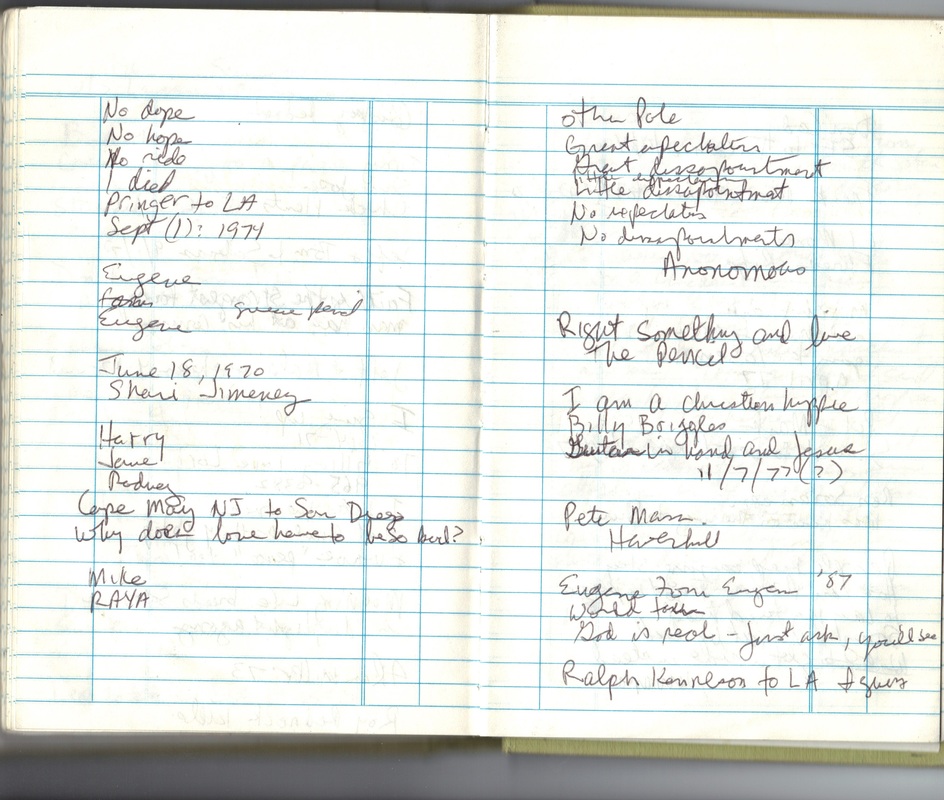 No dope
No hope
No ride
I died
Pringer to LA
Sept (1): 1974
Eugene
Eugene
June 18, 1970
Shari Jimeney
Harry
Jane
Rodney
Cape May NJ to San Diego
Why does love have to be so bad?
Mike
RAYA
other Pole
Great
Great dissapointment
little dissapointmet
No
No dissapointments
Anonomous
Right Something and live
The Pencel
I am a christion hyppie
Billy Briggles
in hand and Jesus
11/7/77 (?)
Pete Mann.
Haverhill
Eugene from Eugen '87
World
God is real - Just ask, you'll see
Ralph Kenneson to LA